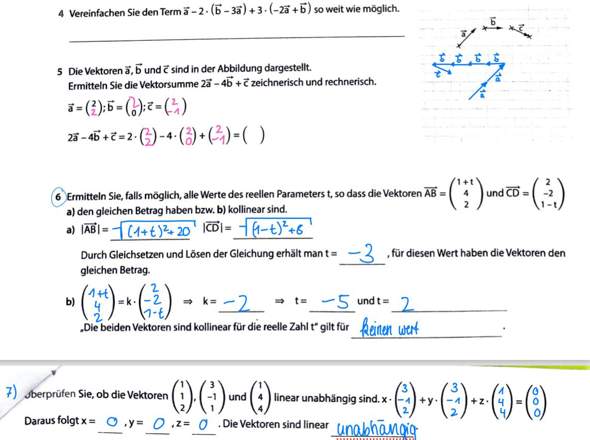 4 Vereinfachen Sie den Term a⃗ − 2 · (b⃗ − 3a⃗) + 3 · (−2a⃗ + b⃗) so weit wie möglich.
b⃗
a⃗ c⃗
b⃗ b⃗ b⃗ b⃗
c⃗ a⃗ a⃗
5 Die Vektoren a⃗, b⃗ und c⃗ sind in der Abbildung dargestellt.
Ermitteln Sie die Vektorsumme 2a⃗ − 4b⃗ + c⃗ zeichnerisch und rechnerisch.
a⃗ = (2 2); b⃗ = (2 0); c⃗ = (2 −1)
2a⃗ − 4b⃗ + c⃗ = 2 · (2 2) − 4 · (2 0) + (2 −1) = ( )
6 Ermitteln Sie, falls möglich, alle Werte des reellen Parameters t, so dass die Vektoren AB⃗ = (1 + t 4 2) und CD⃗ = (2 −2 1 − t)
a) den gleichen Betrag haben bzw. b) kollinear sind.
a) |AB⃗| = √(1+t)²+20 |CD⃗| = √(1−t)²+8
Durch Gleichsetzen und Lösen der Gleichung erhält man t = −3, für diesen Wert haben die Vektoren den
gleichen Betrag.
b) (1+t 4 2) = k · (2 −2 1−t) ⇒ k = −2 ⇒ t = −5 und t = 2
„Die beiden Vektoren sind kollinear für die reelle Zahl t“ gilt für keinen wert
7) Überprüfen Sie, ob die Vektoren (1 1 2), (3 −1 1) und (1 4 4) linear unabhängig sind. x · (3 −1 2) + y · (3 −1 2) + z · (1 4 4) = (0 0 0)
Daraus folgt x = 0, y = 0, z = 0. Die Vektoren sind linear unabhängig